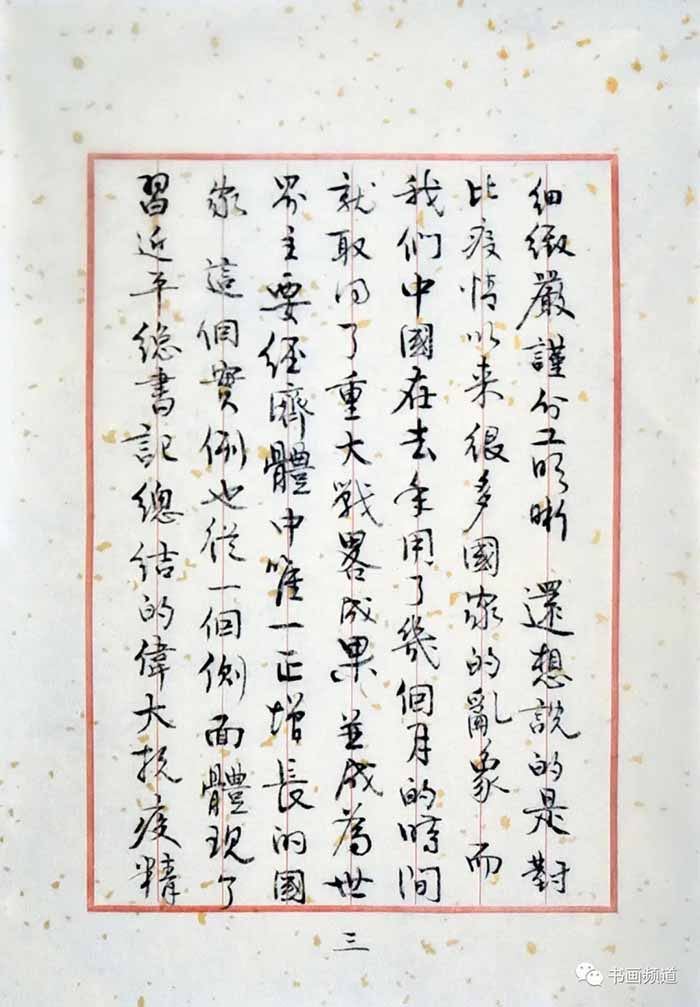 細緻嚴謹分工明晰 還想說的是對
比疫情以来很多國家的亂象 而
我們中國在去年用了幾個月的時間
就取得了重大戰畧成果 並成為世
界主要經濟體中唯一正增長的國
家 這個實例也從一個側面體現了
習近平總書記總結的偉大抗疫精
三
书画频道